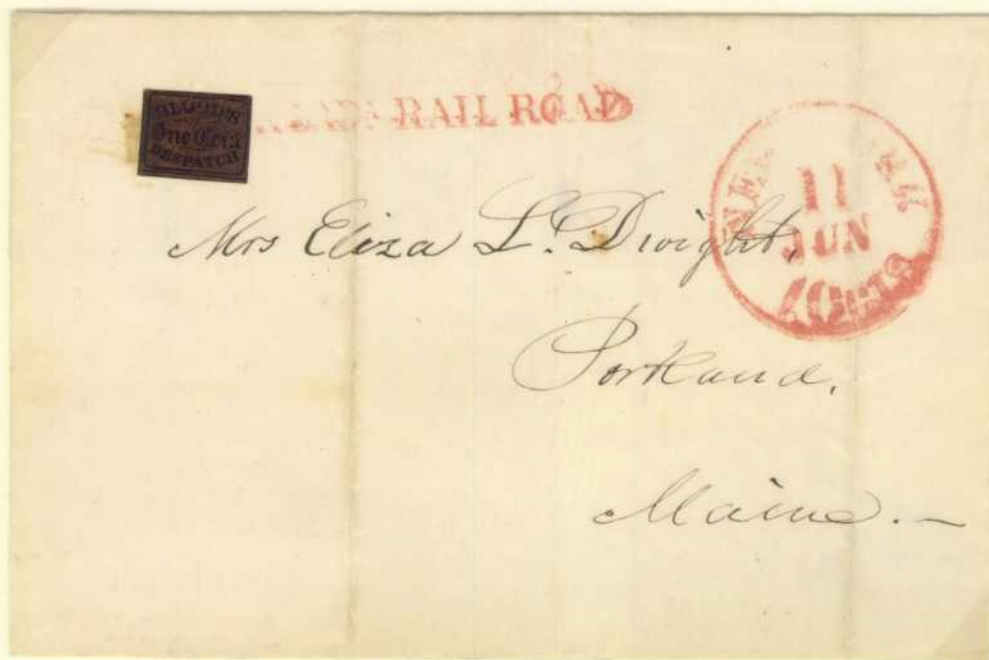 BLOOD'S
One Cent
DESPATCH
RAIL ROAD
11
JUN
10 cts
Mrs Eliza L. Dwight,
Portland,
Maine.